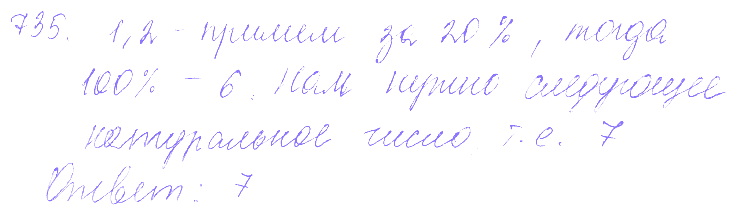 735. 1,2 - примем за 20%, тогда
100% - 6. Нам нужно следующее
натуральное число, т.е. 7
Ответ: 7